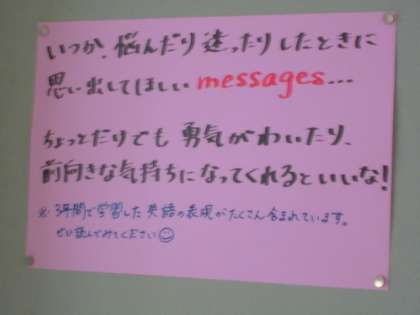 いつか、悩んだり迷ったりしたときに
思い出してほしい messages...
ちょっとだけでも 勇気がわいたり、
前向きな気持ちになってくれるといいな!
※ 3年間で学習した 英語の表現がたくさん含まれています。
ぜひ読んでみてください☺